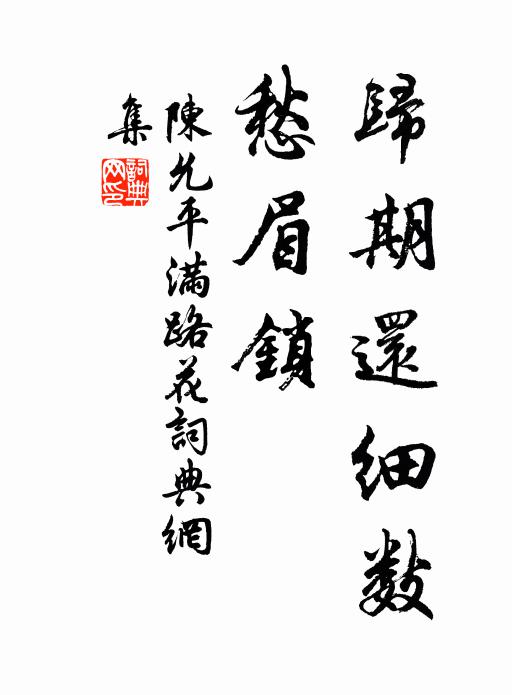 歸期還細數
愁眉鎖
陳允平滿路花詞典網
集
詞典網印